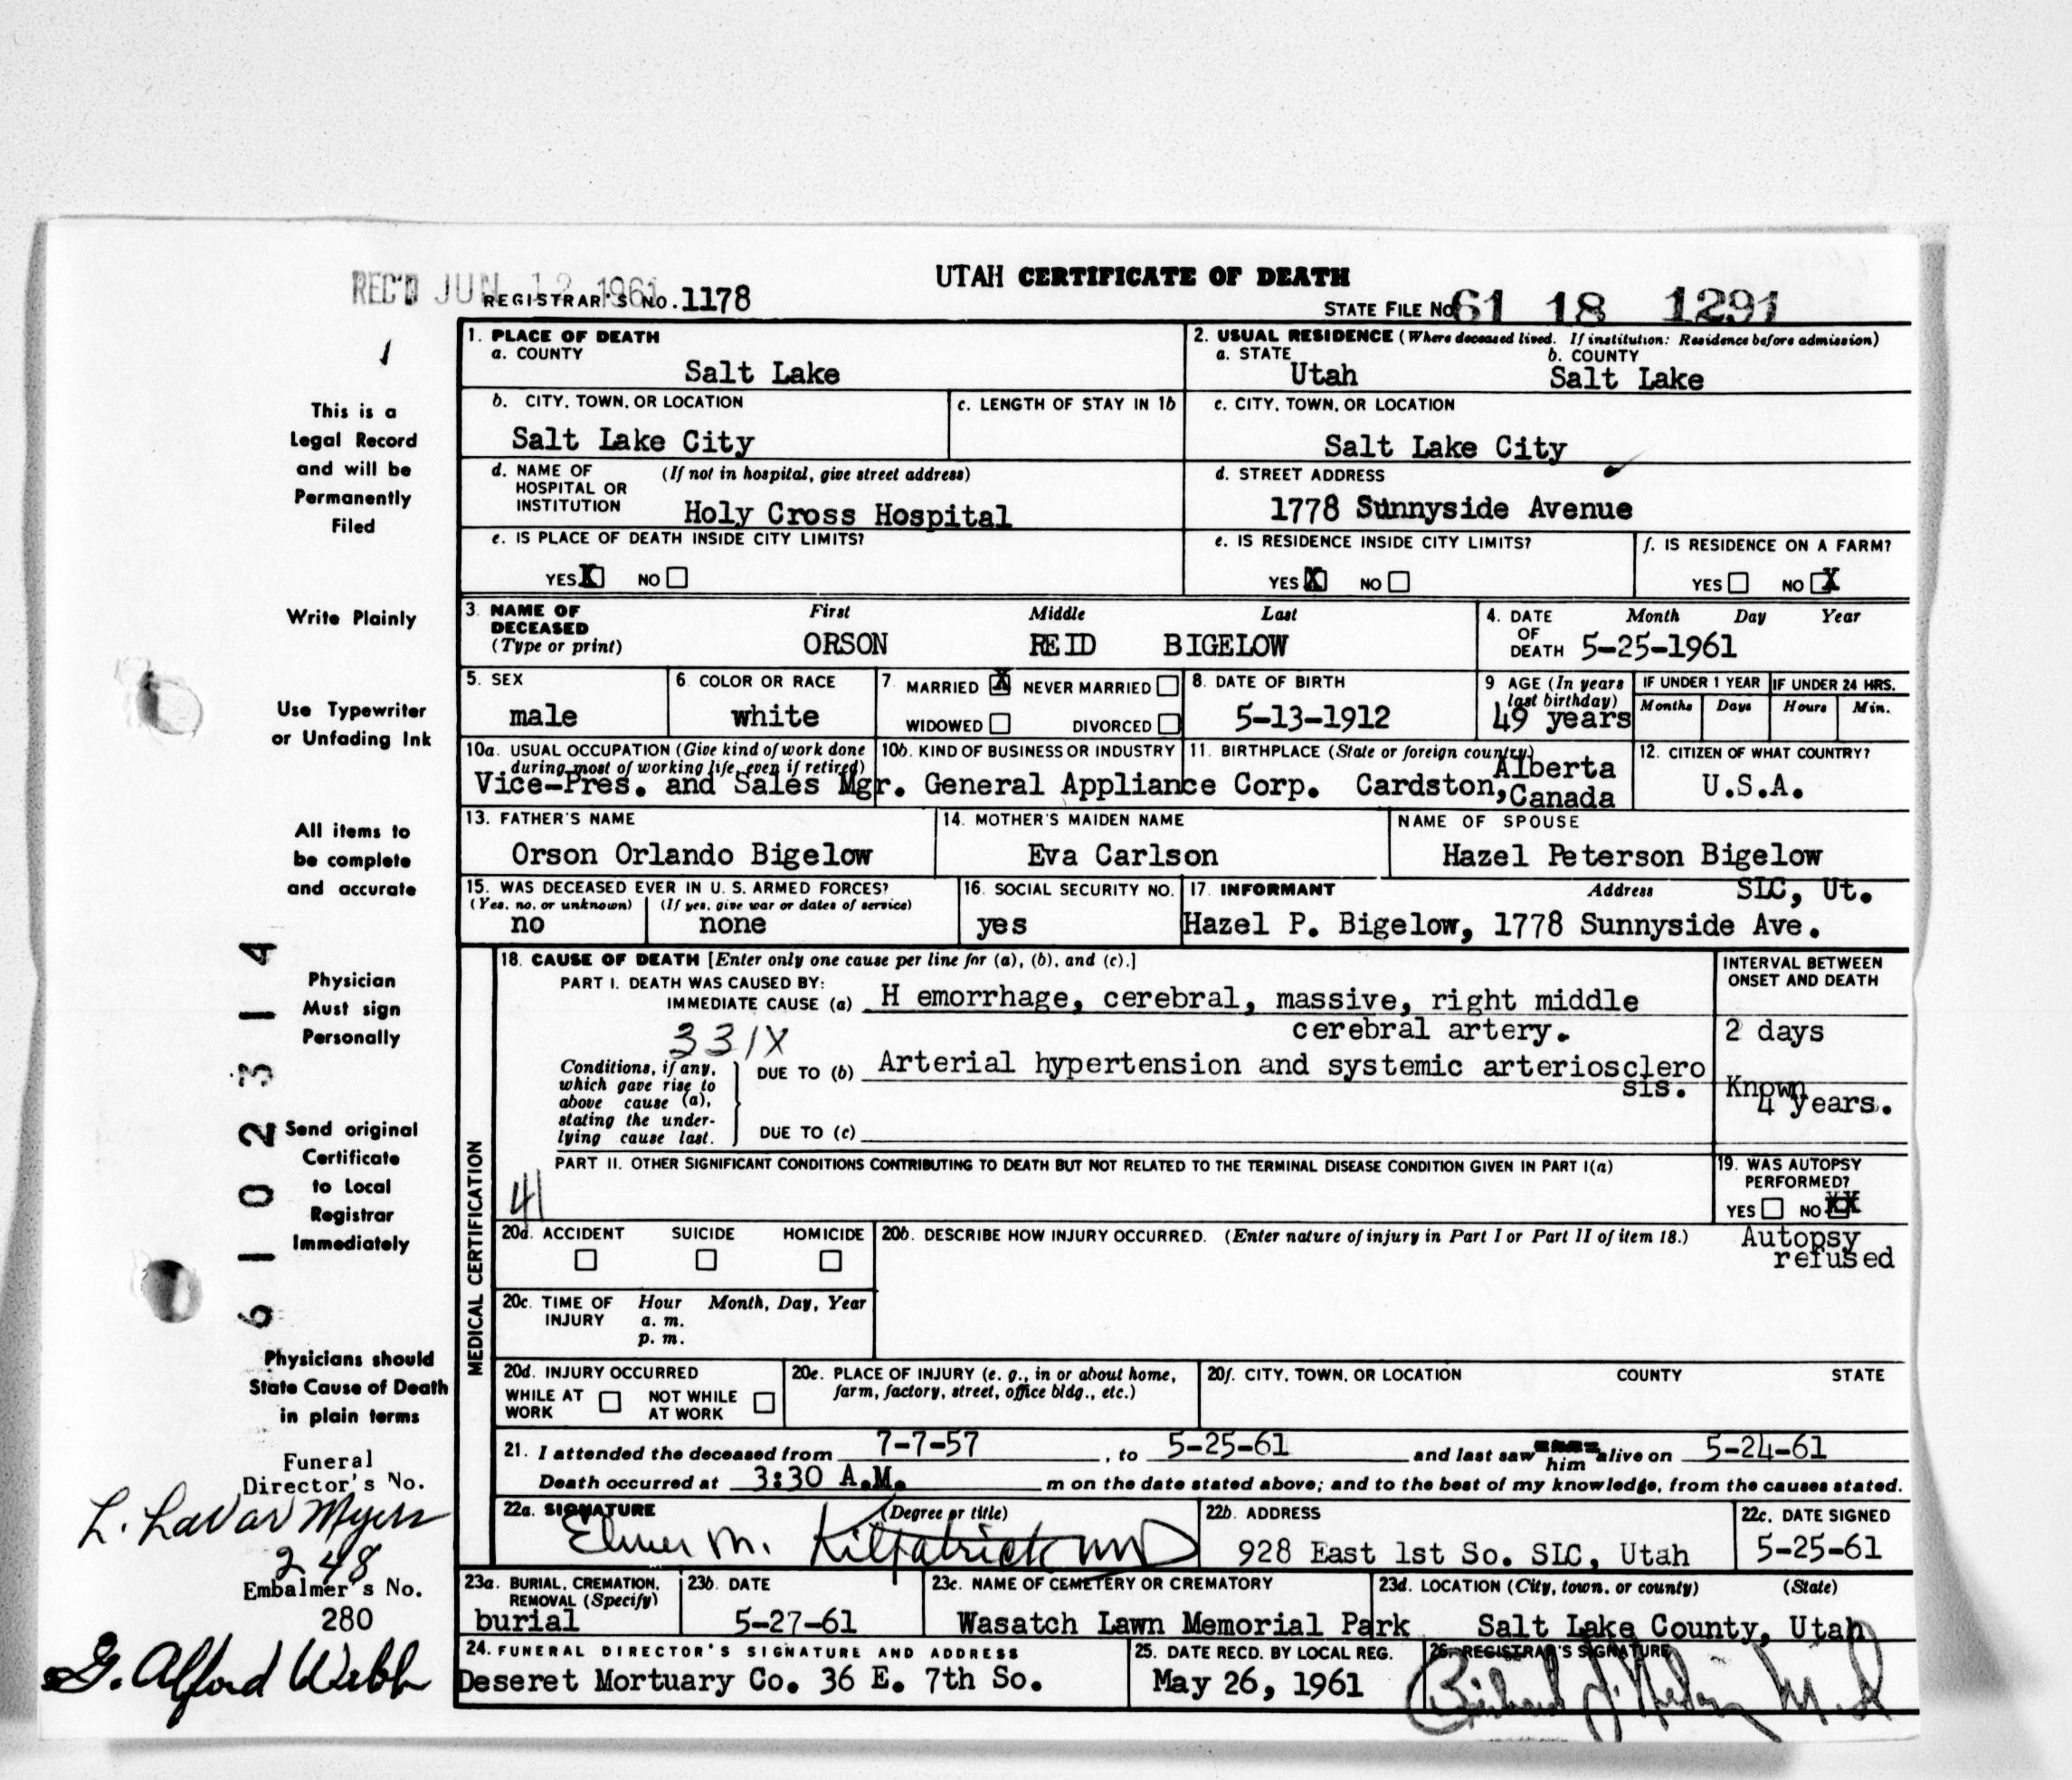 UTAH CERTIFICATE OF DEATH
REC'D JUN 12 1961
REGISTRAR'S NO. 1178
STATE FILE NO. 61 18 1291
1. PLACE OF DEATH
a. COUNTY
Salt Lake
2. USUAL RESIDENCE (Where deceased lived. If institution: Residence before admission)
a. STATE
Utah
b. COUNTY
Salt Lake
b. CITY, TOWN, OR LOCATION
Salt Lake City
c. LENGTH OF STAY IN 1b
c. CITY, TOWN, OR LOCATION
Salt Lake City
d. NAME OF HOSPITAL OR INSTITUTION
(If not in hospital, give street address)
Holy Cross Hospital
d. STREET ADDRESS
1778 Sunnyside Avenue
e. IS PLACE OF DEATH INSIDE CITY LIMITS?
YES X NO
e. IS RESIDENCE INSIDE CITY LIMITS?
YES X NO
f. IS RESIDENCE ON A FARM?
YES NO X
3. NAME OF DECEASED (Type or print)
First Middle Last
ORSON REID BIGELOW
4. DATE OF DEATH
Month Day Year
5-25-1961
5. SEX
male
6. COLOR OR RACE
white
7. MARRIED X NEVER MARRIED
WIDOWED DIVORCED
8. DATE OF BIRTH
5-13-1912
9 AGE (In years last birthday)
49 years
IF UNDER 1 YEAR
Months Days
IF UNDER 24 HRS.
Hours Min.
10a. USUAL OCCUPATION (Give kind of work done during most of working life, even if retired)
Vice-Pres. and Sales Mgr.
10b. KIND OF BUSINESS OR INDUSTRY
General Appliance Corp.
11. BIRTHPLACE (State or foreign country)
Cardston, Alberta Canada
12. CITIZEN OF WHAT COUNTRY?
U.S.A.
13. FATHER'S NAME
Orson Orlando Bigelow
14. MOTHER'S MAIDEN NAME
Eva Carlson
NAME OF SPOUSE
Hazel Peterson Bigelow
15. WAS DECEASED EVER IN U. S. ARMED FORCES?
(Yes, no, or unknown) (If yes, give war or dates of service)
no none
16. SOCIAL SECURITY NO.
yes
17. INFORMANT Address
SLC, Ut.
Hazel P. Bigelow, 1778 Sunnyside Ave.
MEDICAL CERTIFICATION
18. CAUSE OF DEATH [Enter only one cause per line for (a), (b), and (c).]
INTERVAL BETWEEN ONSET AND DEATH
PART I. DEATH WAS CAUSED BY:
IMMEDIATE CAUSE (a) H emorrhage, cerebral, massive, right middle
cerebral artery.
2 days
331X
Conditions, if any, which gave rise to above cause (a), stating the underlying cause last.
DUE TO (b) Arterial hypertension and systemic arteriosclero
sis.
Known
4 years.
DUE TO (c)
PART II. OTHER SIGNIFICANT CONDITIONS CONTRIBUTING TO DEATH BUT NOT RELATED TO THE TERMINAL DISEASE CONDITION GIVEN IN PART I(a)
41
19. WAS AUTOPSY PERFORMED?
YES NO XX
Autopsy
refused
20a. ACCIDENT SUICIDE HOMICIDE
20b. DESCRIBE HOW INJURY OCCURRED. (Enter nature of injury in Part I or Part II of item 18.)
20c. TIME OF INJURY
Hour Month, Day, Year
a. m.
p. m.
20d. INJURY OCCURRED
WHILE AT WORK NOT WHILE AT WORK
20e. PLACE OF INJURY (e. g., in or about home, farm, factory, street, office bldg., etc.)
20f. CITY, TOWN, OR LOCATION COUNTY STATE
21. I attended the deceased from 7-7-57, to 5-25-61 and last saw him alive on 5-24-61
Death occurred at 3:30 A.M. m on the date stated above; and to the best of my knowledge, from the causes stated.
22a. SIGNATURE (Degree or title)
Elmer M. Kilpatrick MD
22b. ADDRESS
928 East 1st So. SLC, Utah
22c. DATE SIGNED
5-25-61
23a. BURIAL, CREMATION, REMOVAL (Specify)
burial
23b. DATE
5-27-61
23c. NAME OF CEMETERY OR CREMATORY
Wasatch Lawn Memorial Park
23d. LOCATION (City, town, or county) (State)
Salt Lake County, Utah
24. FUNERAL DIRECTOR'S SIGNATURE AND ADDRESS
Deseret Mortuary Co. 36 E. 7th So.
25. DATE RECD. BY LOCAL REG.
May 26, 1961
26. REGISTRAR'S SIGNATURE
This is a
Legal Record
and will be
Permanently
Filed
Write Plainly
Use Typewriter
or Unfading Ink
All items to
be complete
and accurate
Physician
Must sign
Personally
Send original
Certificate
to Local
Registrar
Immediately
Physicians should
State Cause of Death
in plain terms
6102314
Funeral
Director's No.
L. LaVar Myers
248
Embalmer's No.
280
G. Alford Webb